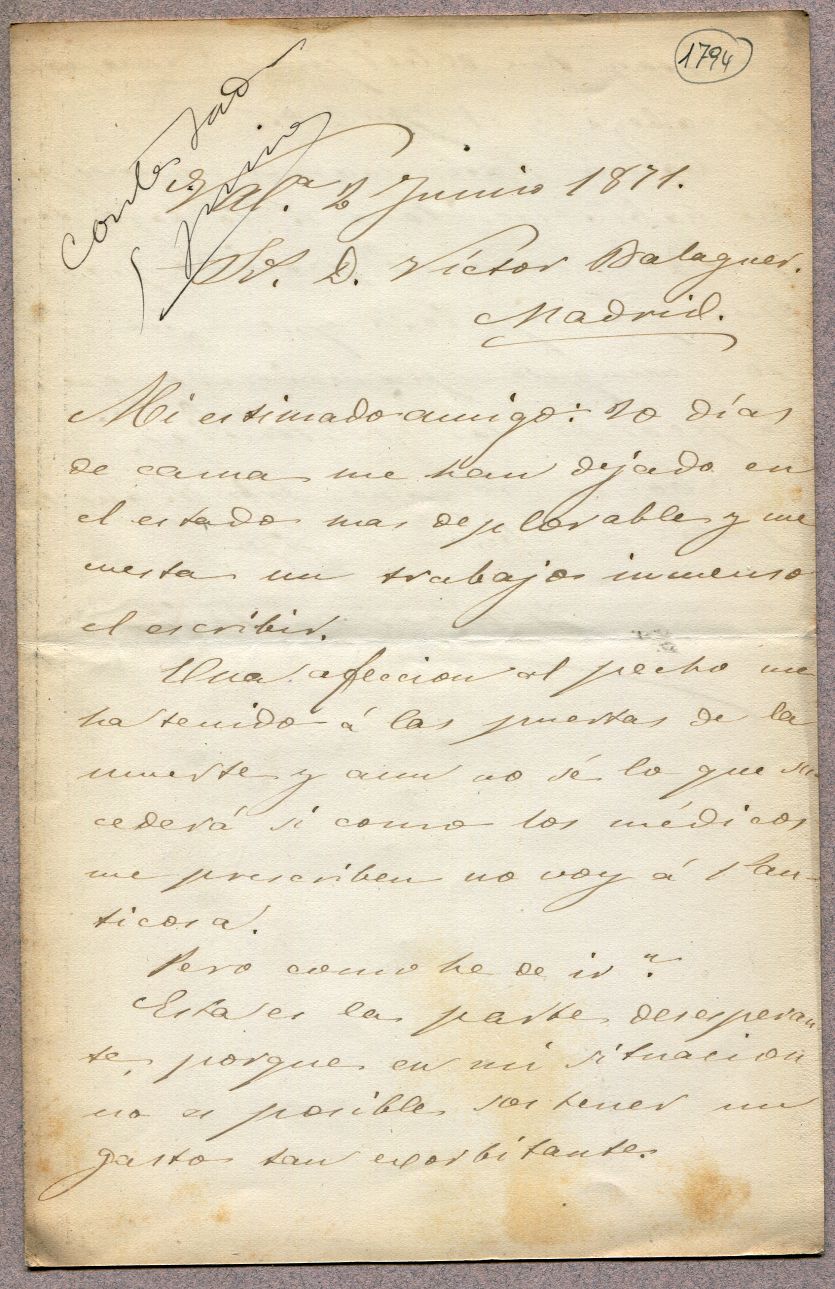 1794
contestado
5 junio
Val.ª 2 Junio 1871.
Sr. D. Víctor Balaguer.
Madrid.
Mi estimado amigo: 20 días
de cama me han dejado en
el estado mas deplorable y me
cuesta un trabajo inmenso
el escribir.
Una afeccion al pecho me
ha tenido á las puertas de la
muerte y aun no sé lo que su-
cederá si como los médicos
me prescriben no voy á Pan-
ticosa.
Pero como he de ir?
Esta es la parte desesperan
te, porque en mi situacion
no es posible sostener un
gasto tan exorbitante.